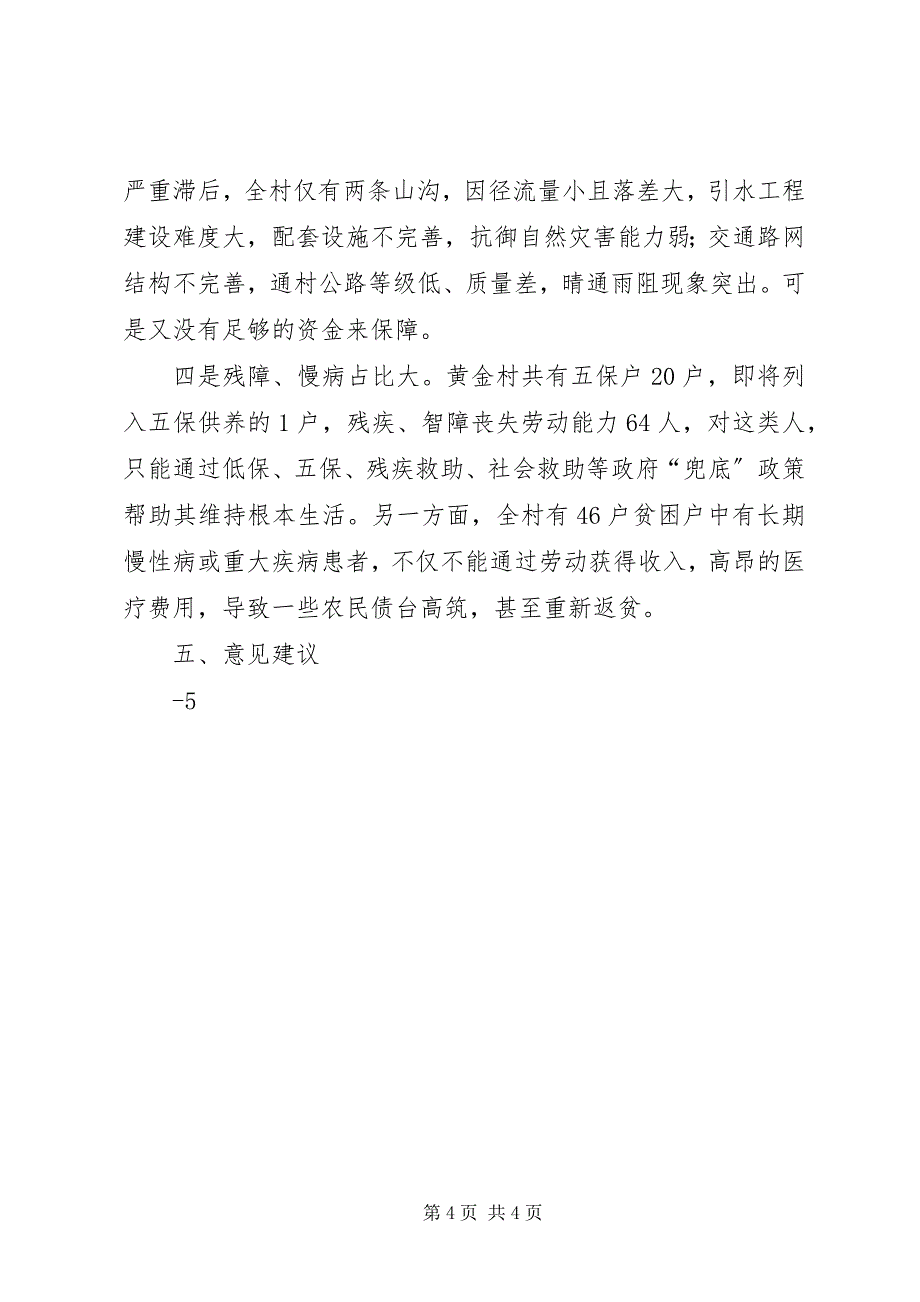 严重滞后，全村仅有两条山沟，因径流量小且落差大，引水工程
建设难度大，配套设施不完善，抗御自然灾害能力弱；交通路网
结构不完善，通村公路等级低、质量差，晴通雨阻现象突出。可
是又没有足够的资金来保障。
四是残障、慢病占比大。黄金村共有五保户 20 户，即将列
入五保供养的 1 户，残疾、智障丧失劳动能力 64 人，对这类人，
只能通过低保、五保、残疾救助、社会救助等政府“兜底〞政策
帮助其维持根本生活。另一方面，全村有 46 户贫困户中有长期
慢性病或重大疾病患者，不仅不能通过劳动获得收入，高昂的医
疗费用，导致一些农民债台高筑，甚至重新返贫。
五、意见建议
-5
第 4 页 共 4 页